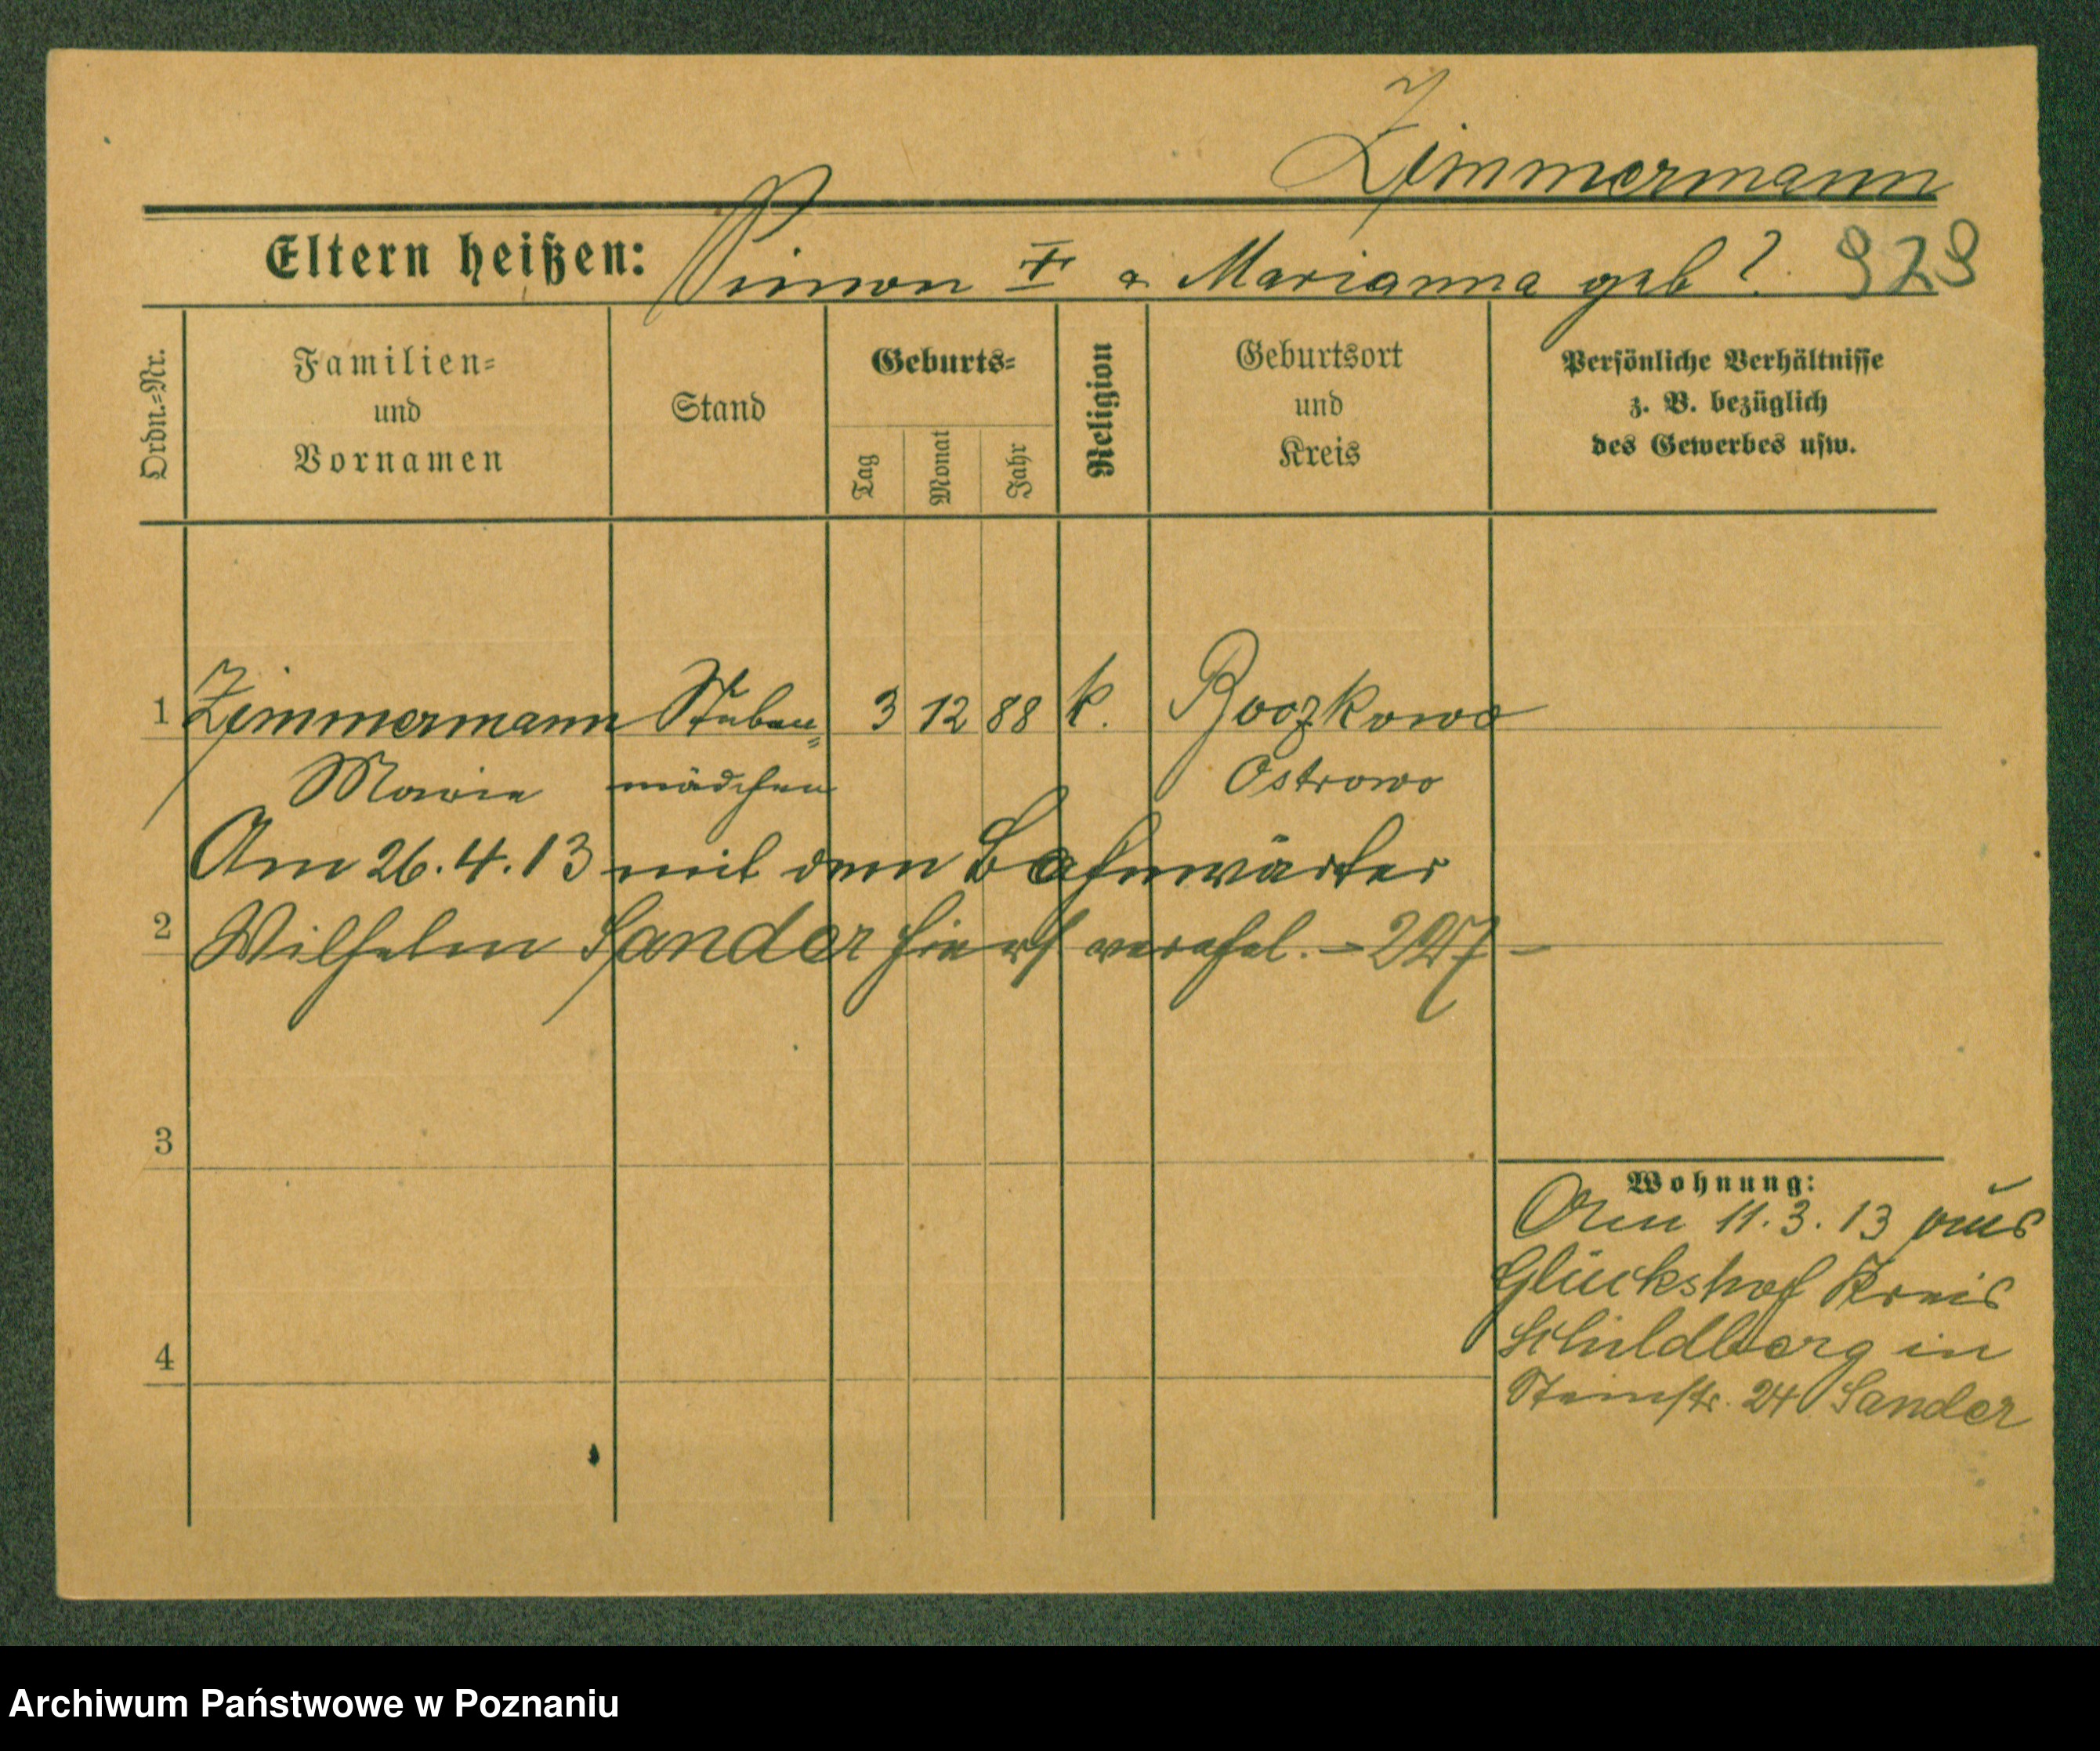 Zimmermann
Eltern heißen: Simon † u. Marianna geb ?. 929
Ordn.=Nr.
Familien=
und
Vornamen
Stand
Geburts=
Tag
Monat
Jahr
Religion
Geburtsort
und
Kreis
Persönliche Verhältnisse
z. B. bezüglich
des Gewerbes usw.
1 Zimmermann Stuben= 3 12 88 k.
Marie mädchen Ostrowo
Am 26.4.13 mit dem Bahnwärter
2 Wilhelm Sander hier verehel.
3
4
Wohnung:
Am 11.3.13 aus
Glückshof Kreis
Schildberg in
Steinstr. 24 Sander
Archiwum Państwowe w Poznaniu